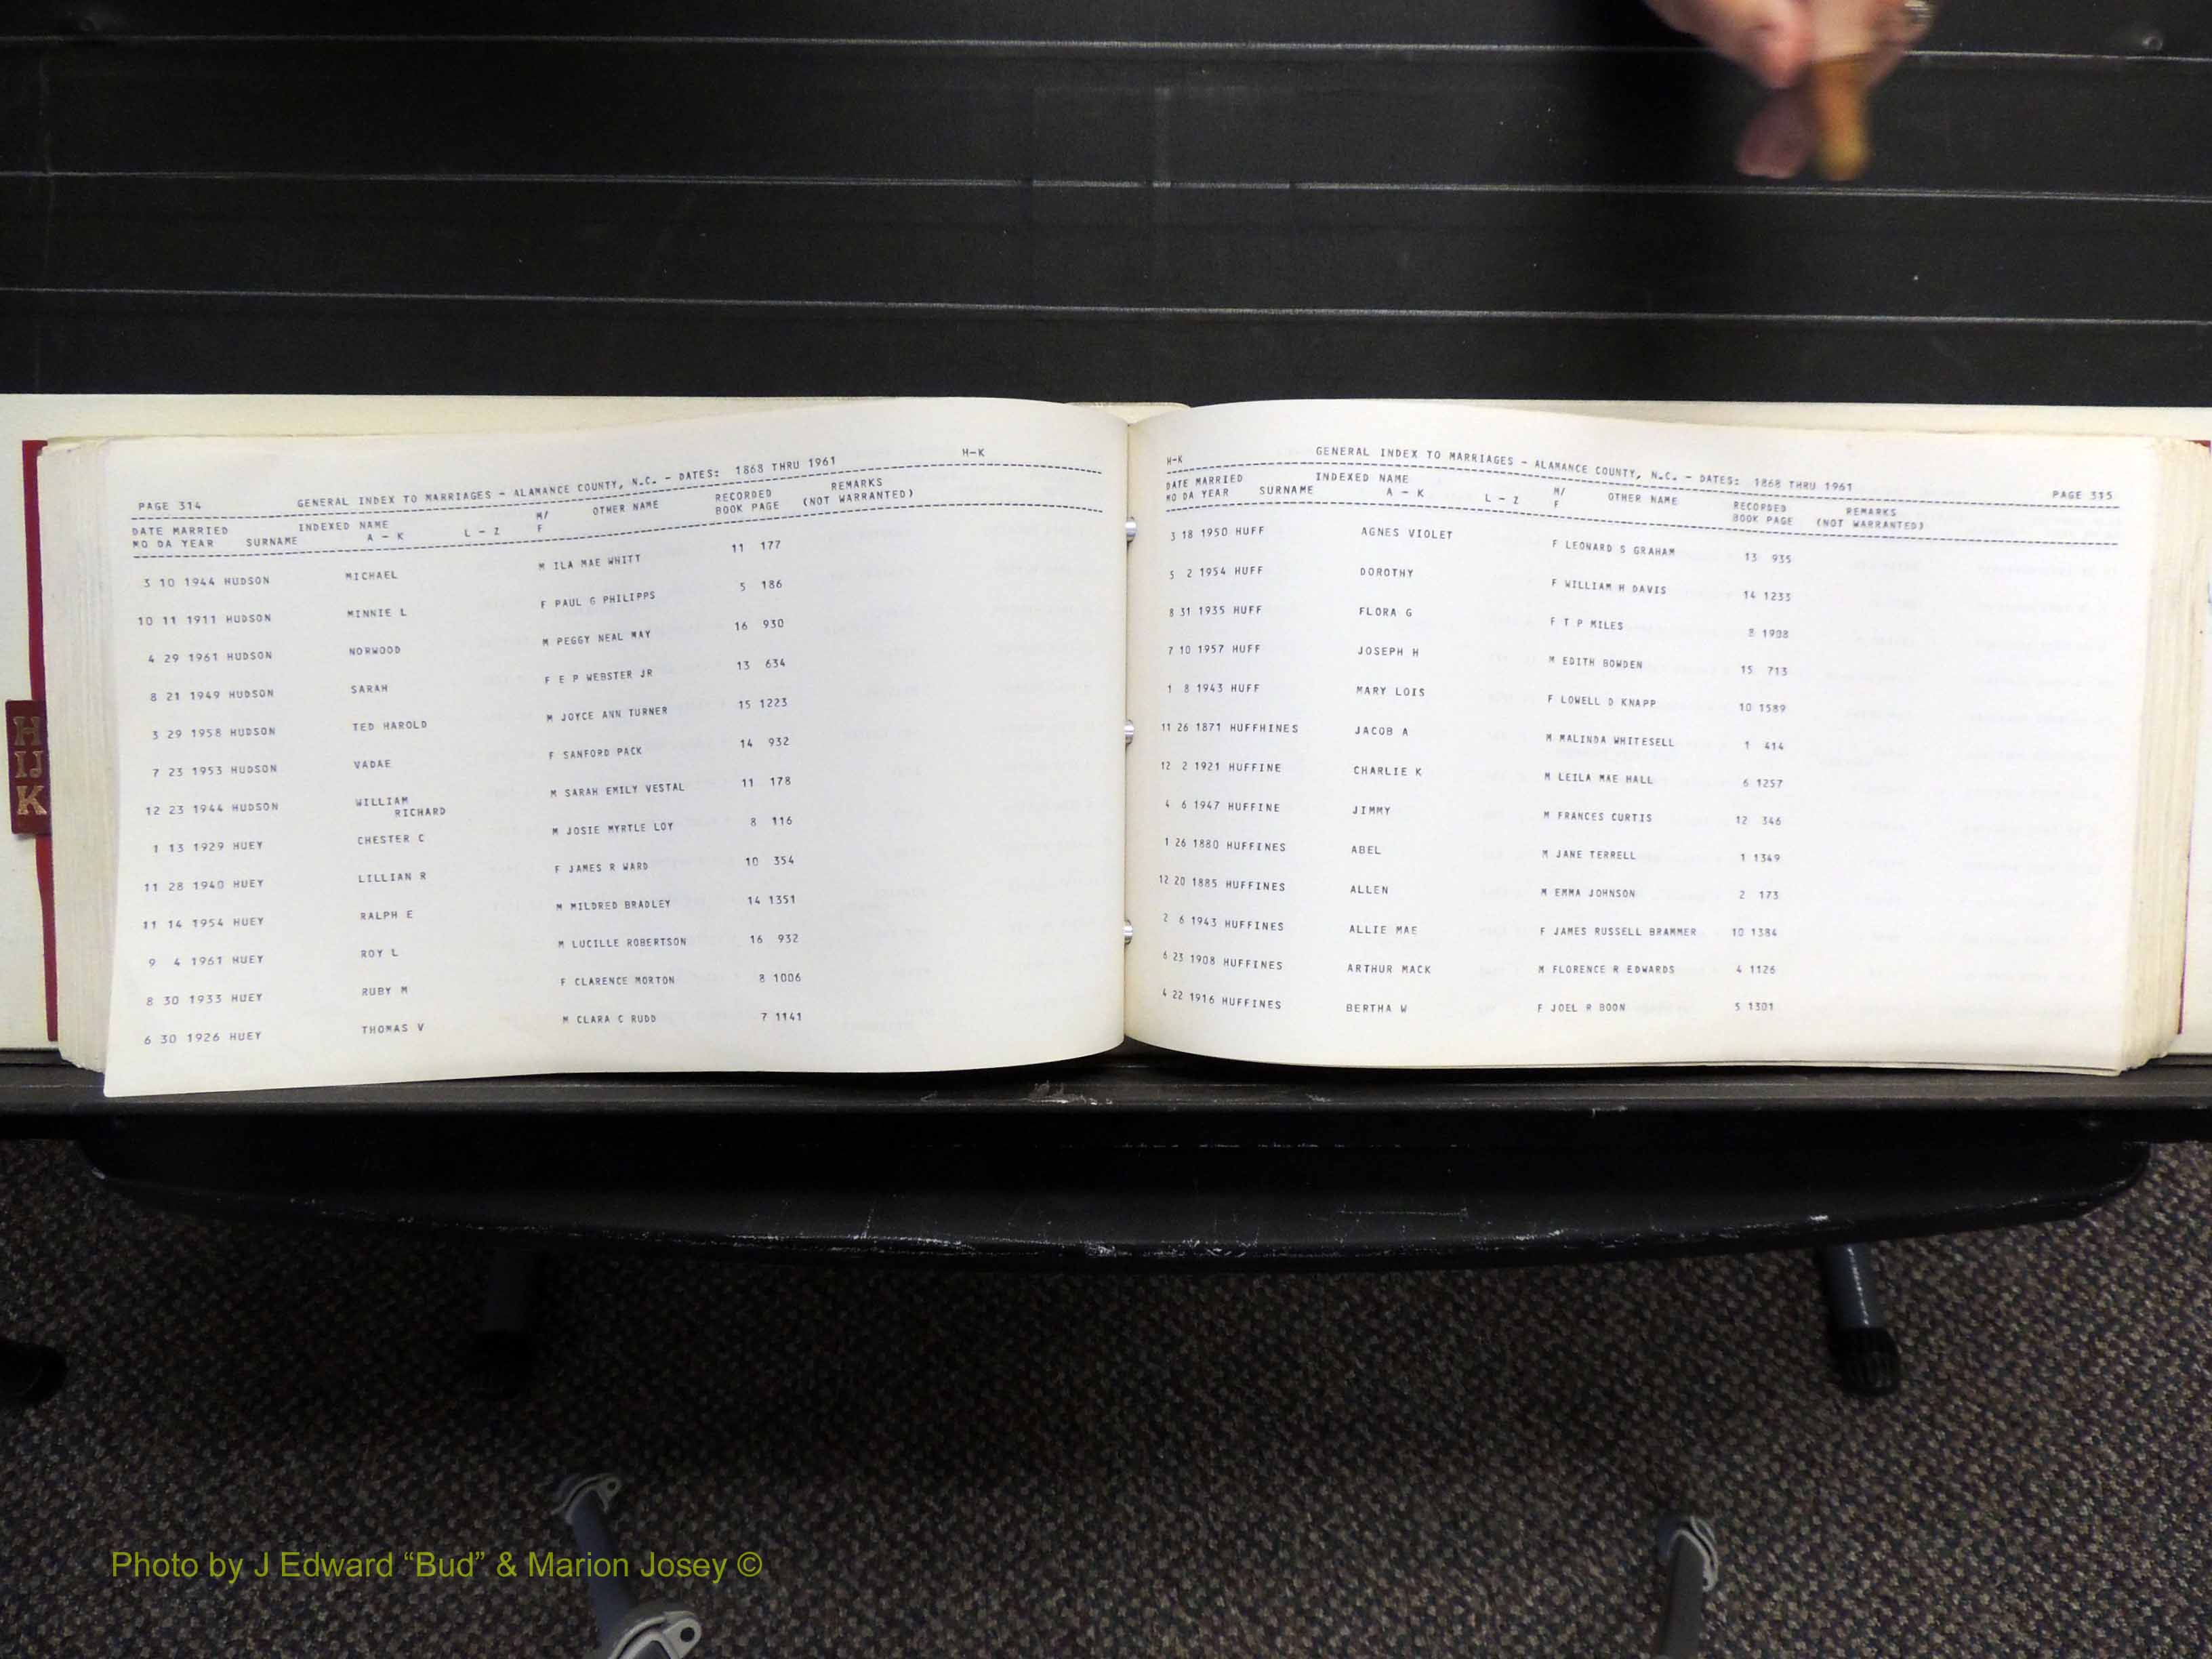 H
IJ
K
PAGE 314 GENERAL INDEX TO MARRIAGES - ALAMANCE COUNTY, N.C. - DATES: 1868 THRU 1961 H-K
DATE MARRIED INDEXED NAME M/ OTHER NAME RECORDED REMARKS
MO DA YEAR SURNAME A - K L - Z F BOOK PAGE (NOT WARRANTED)
3 10 1944 HUDSON MICHAEL M ILA MAE WHITT 11 177
10 11 1911 HUDSON MINNIE L F PAUL G PHILIPPS 5 186
4 29 1961 HUDSON NORWOOD M PEGGY NEAL MAY 16 930
8 21 1949 HUDSON SARAH F E P WEBSTER JR 13 634
3 29 1958 HUDSON TED HAROLD M JOYCE ANN TURNER 15 1223
7 23 1953 HUDSON VADAE F SANFORD PACK 14 932
12 23 1944 HUDSON WILLIAM M SARAH EMILY VESTAL 11 178
RICHARD
1 13 1929 HUEY CHESTER C M JOSIE MYRTLE LOY 8 116
11 28 1940 HUEY LILLIAN R F JAMES R WARD 10 354
11 14 1954 HUEY RALPH E M MILDRED BRADLEY 14 1351
9 4 1961 HUEY ROY L M LUCILLE ROBERTSON 16 932
8 30 1933 HUEY RUBY M F CLARENCE MORTON 8 1006
6 30 1926 HUEY THOMAS V M CLARA C RUDD 7 1141
H-K GENERAL INDEX TO MARRIAGES - ALAMANCE COUNTY, N.C. - DATES: 1868 THRU 1961 PAGE 315
DATE MARRIED INDEXED NAME M/ OTHER NAME RECORDED REMARKS
MO DA YEAR SURNAME A - K L - Z F BOOK PAGE (NOT WARRANTED)
3 18 1950 HUFF AGNES VIOLET F LEONARD S GRAHAM 13 935
5 2 1954 HUFF DOROTHY F WILLIAM H DAVIS 14 1233
8 31 1935 HUFF FLORA G F T P MILES 8 1908
7 10 1957 HUFF JOSEPH H M EDITH BOWDEN 15 713
1 8 1943 HUFF MARY LOIS F LOWELL D KNAPP 10 1589
11 26 1871 HUFFHINES JACOB A M MALINDA WHITESELL 1 414
12 2 1921 HUFFINE CHARLIE K M LEILA MAE HALL 6 1257
4 6 1947 HUFFINE JIMMY M FRANCES CURTIS 12 346
1 26 1880 HUFFINES ABEL M JANE TERRELL 1 1349
12 20 1885 HUFFINES ALLEN M EMMA JOHNSON 2 173
2 6 1943 HUFFINES ALLIE MAE F JAMES RUSSELL BRAMMER 10 1384
6 23 1908 HUFFINES ARTHUR MACK M FLORENCE R EDWARDS 4 1126
4 22 1916 HUFFINES BERTHA W F JOEL R BOON 5 1301
Photo by J Edward “Bud” & Marion Josey ©